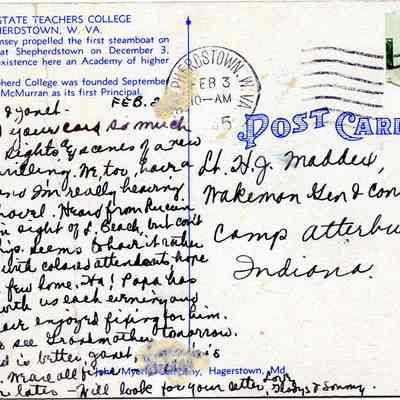 STATE TEACHERS COLLEGE
HERDSTOWN, W. VA.
msey propelled the first steamboat on
at Shepherdstown on December 3,
existence here an Academy of higher
herd College was founded September
McMurran as its first Principal.
PHERDSTOWN, W. VA.
FEB 3
10-AM
5
POST CAR
& Janet.
FEB. 2
your card so much
sights & scenes of a new
thrilling. We, too, have a
and I'm really hearing
Heard from
in sight of V. Beach, but can't
seems to have it rather
with colored attendants, hope
few home. Ha! Papa has
with us each evening and
enjoyed fixing for him.
to see Grandmother tomorrow.
is better, Janet
We are all fine
later - Will look for your letter, Love, Gladys & Sonny.
Lt. H. J. Maddex,
Wakeman Gen & Con
Camp Atterbu
Indiana.
John Myerly Company, Hagerstown, Md.